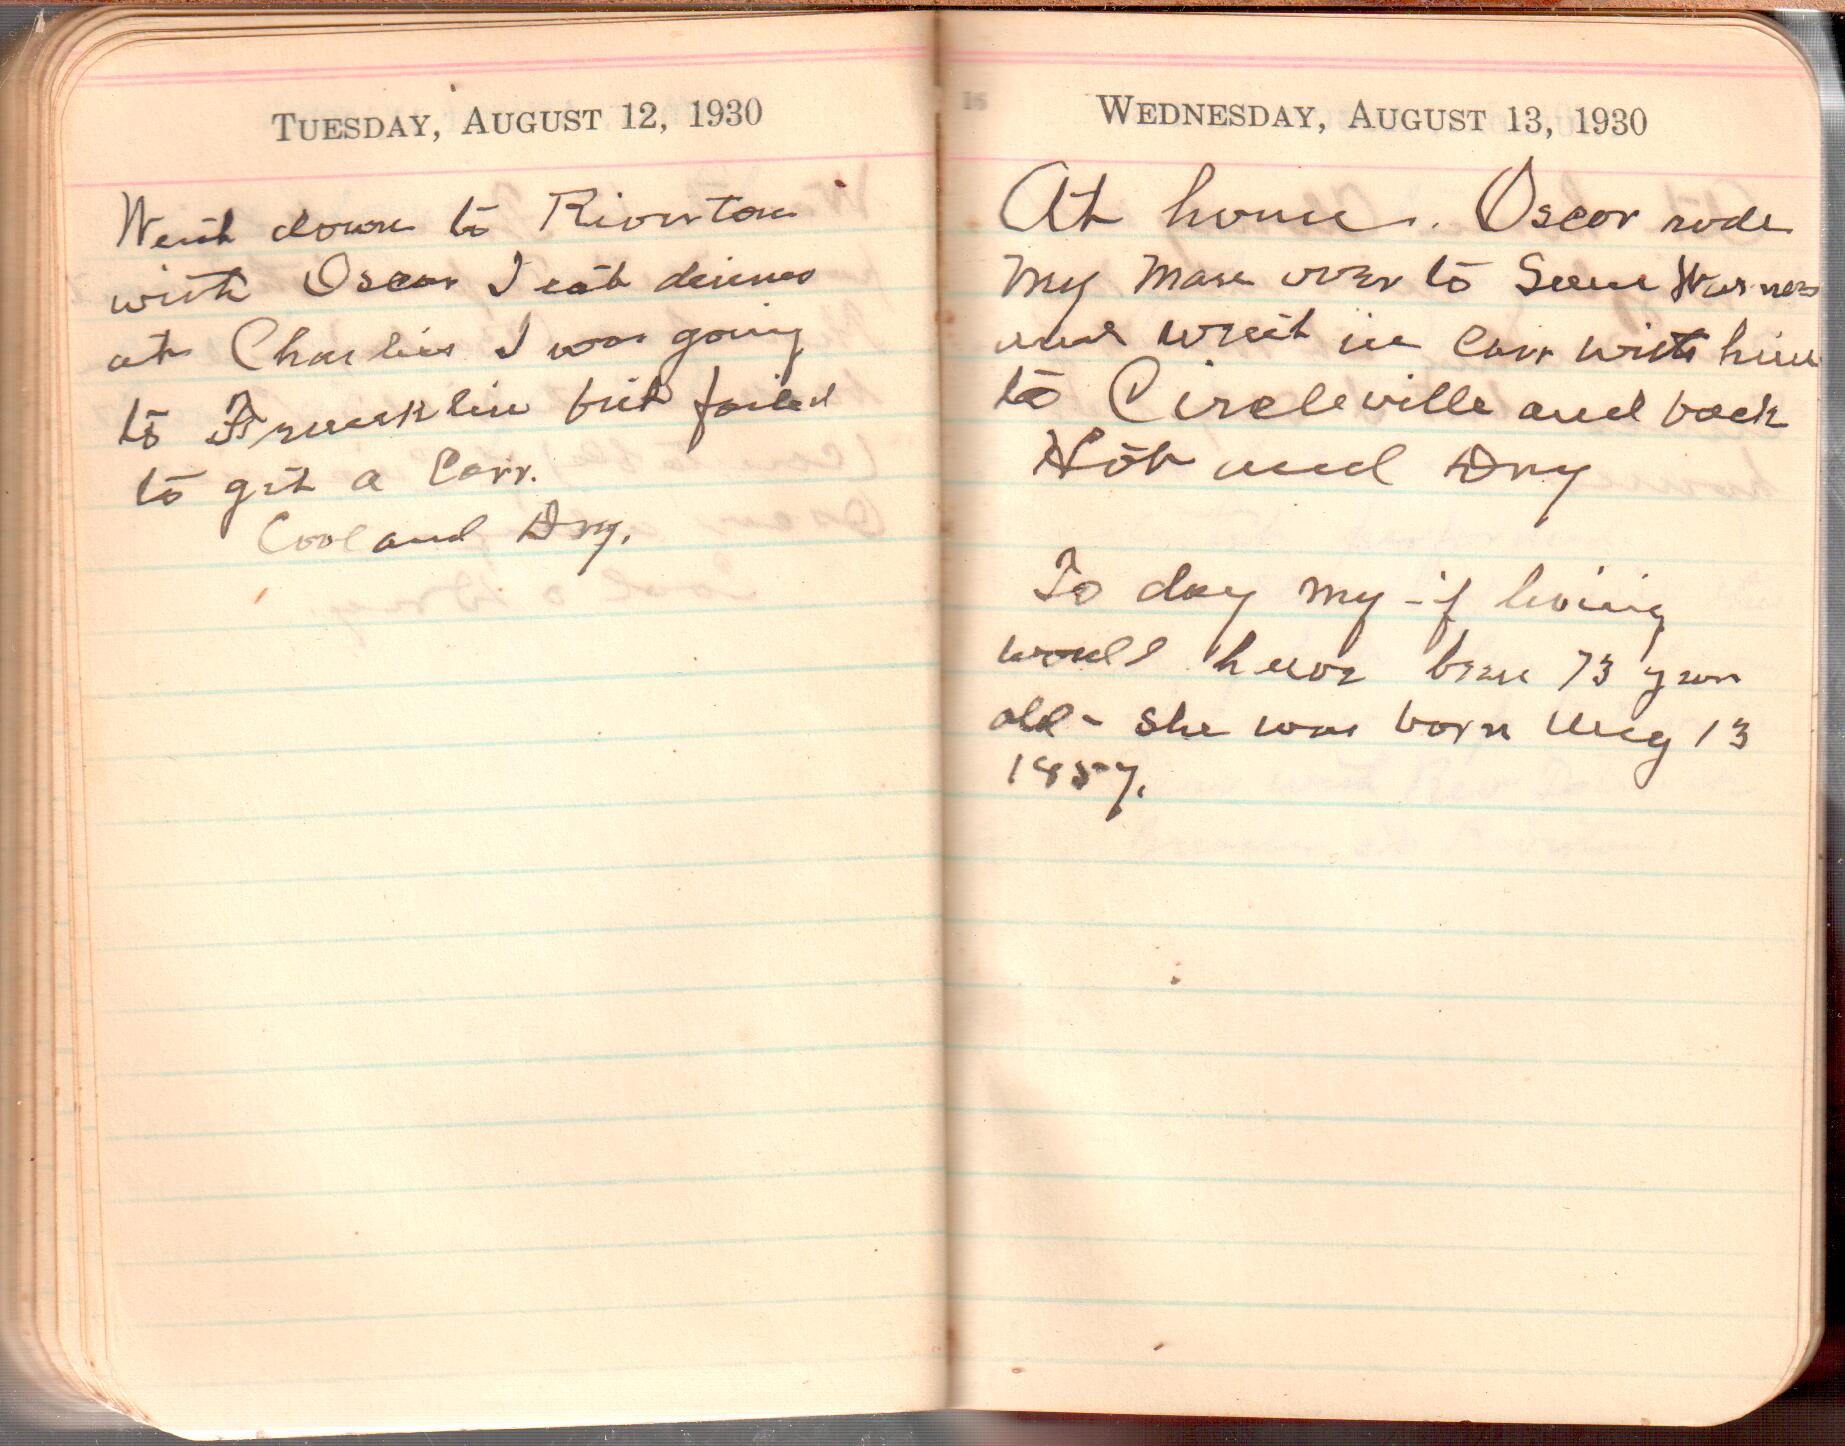 TUESDAY, AUGUST 12, 1930
Went down to Riverton
with Oscar I eat dinner
at Charlies I was going
to Franklin but failed
to get a Carr.
Cool and Dry.
WEDNESDAY, AUGUST 13, 1930
At home. Oscar rode
my mare over to Sam Warners
and went in Carr with him
to Circleville and back
Hot and Dry
To day my - if living
would have been 73 years
old - she was born Aug 13
1857.